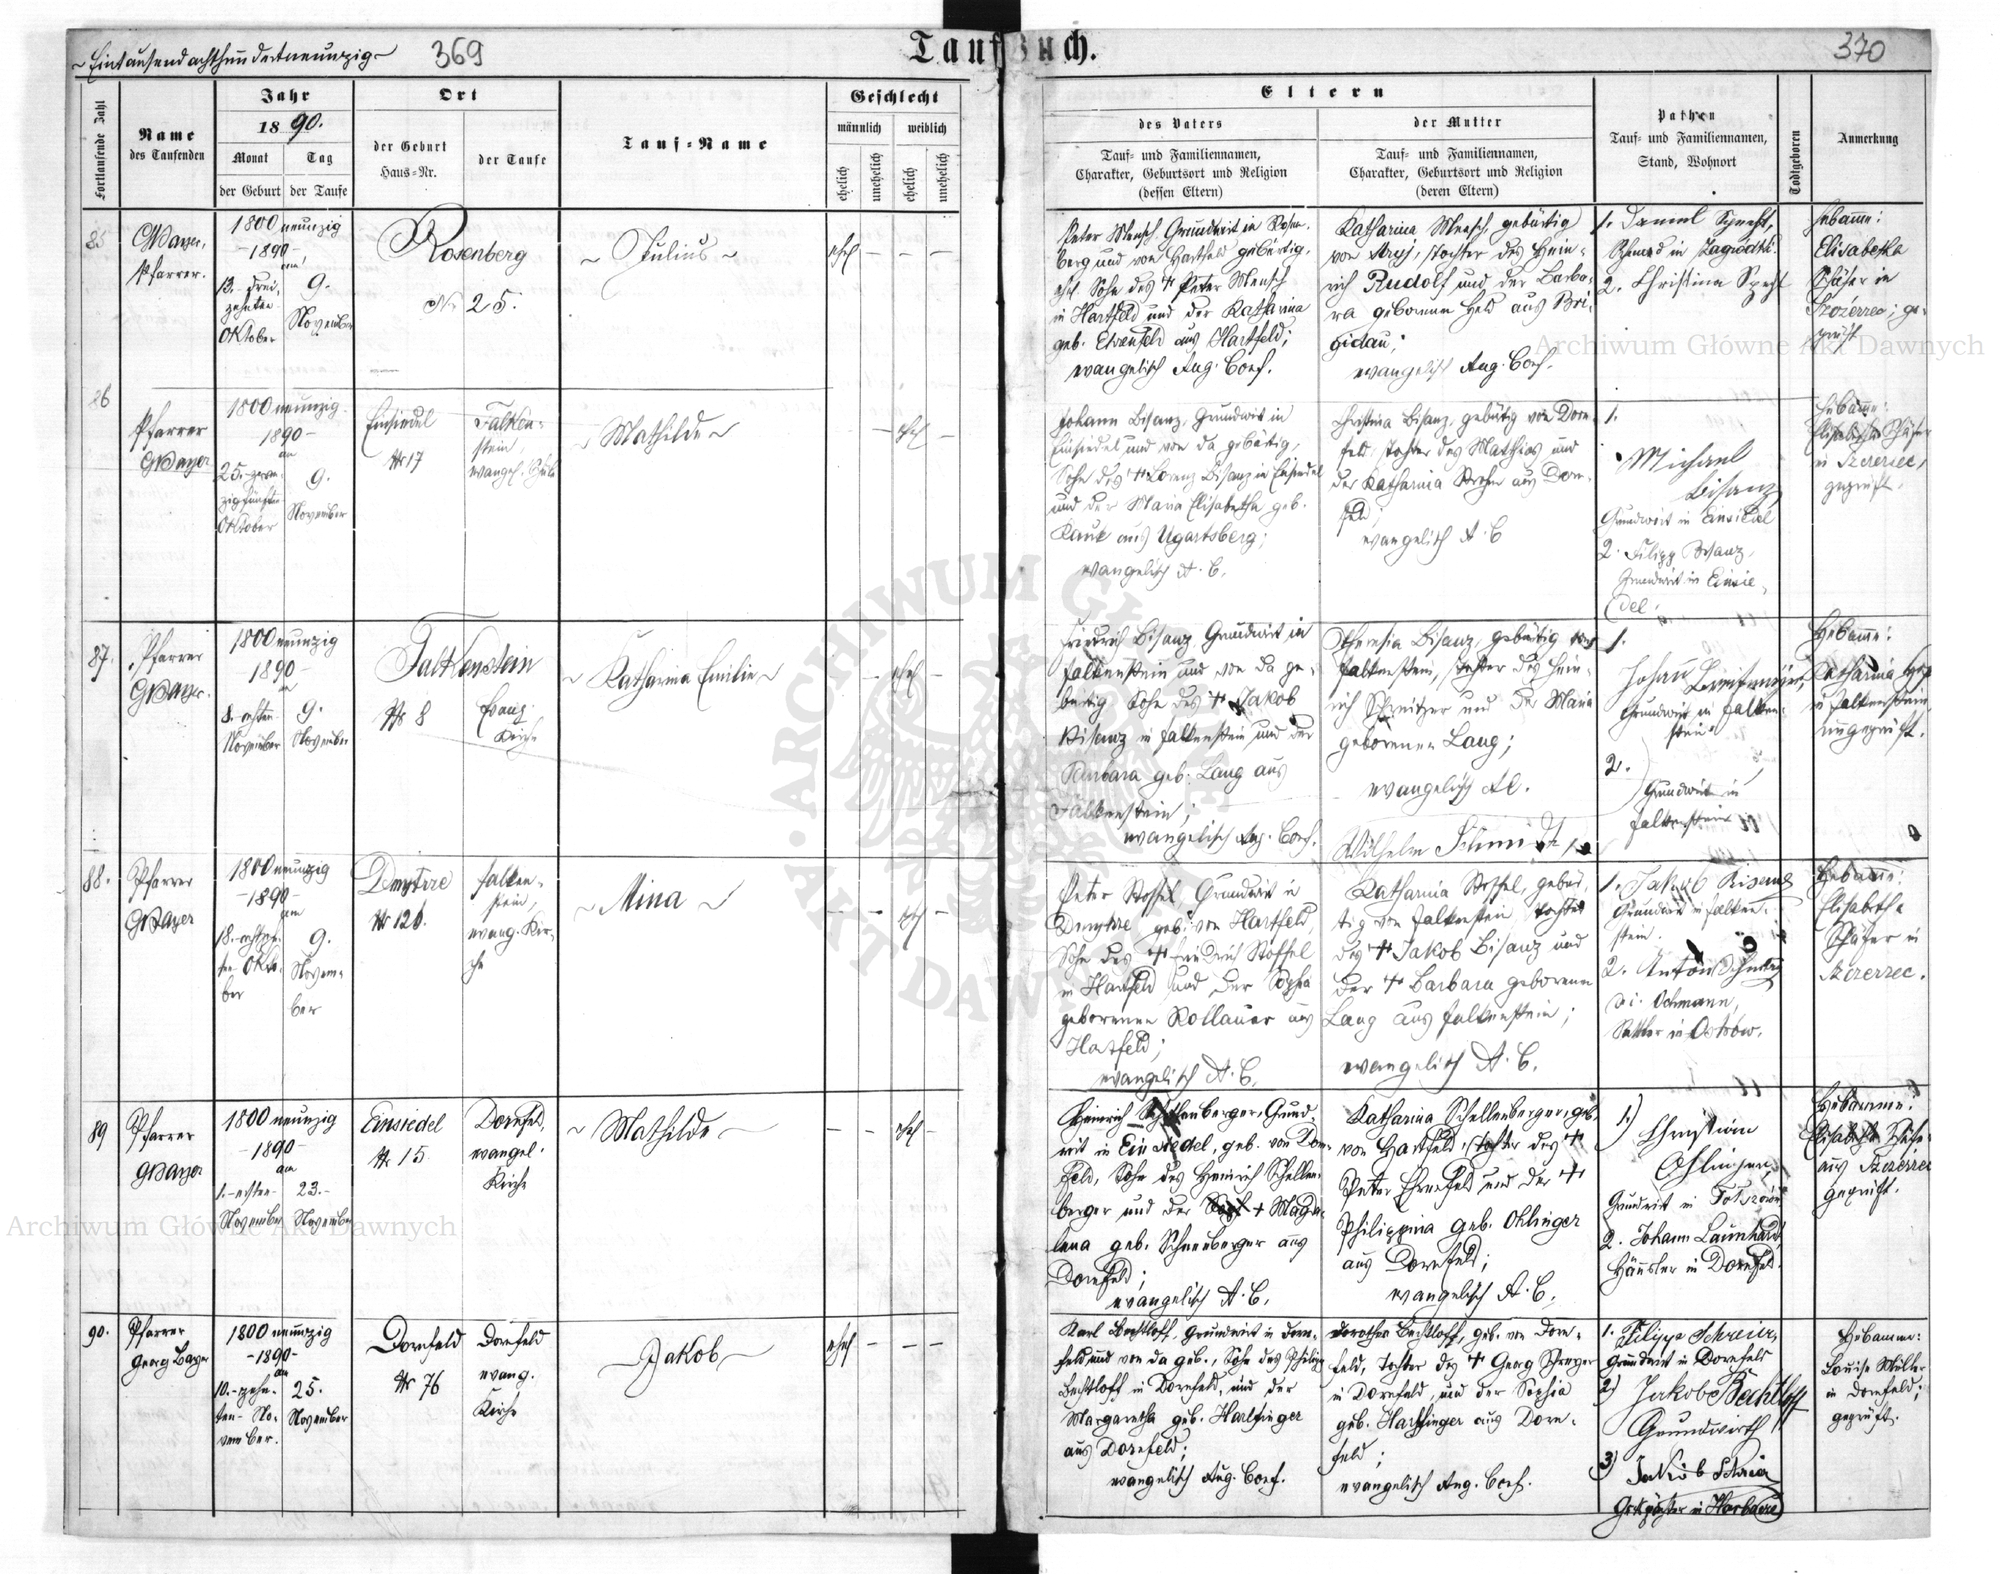 ~ Eintausendachthundertneunzig ~
369
Taufbuch.
370
Fortlaufende Zahl
Name
des Taufenden
Jahr
1890.
Monat
Tag
der Geburt
der Taufe
Ort
der Geburt
Haus=Nr.
der Taufe
Tauf=Name
Geschlecht
männlich
weiblich
ehelich
unehelich
ehelich
unehelich
Eltern
des Vaters
Tauf= und Familiennamen,
Charakter, Geburtsort und Religion
(dessen Eltern)
der Mutter
Tauf= und Familiennamen,
Charakter, Geburtsort und Religion
(deren Eltern)
Pathen
Tauf= und Familiennamen,
Stand, Wohnort
Todtgeboren
Anmerkung
85
GBayer,
Pfarrer.
1800 neunzig
-1890-
am
13.- drei-
zehnten
Oktober
9.
November
Rosenberg
Nr 25.
~ Julius ~
ehel
Peter Mensch, Grundwirt in Rosen-
berg und von Hartfeld gebürtig,
ehl. Sohn des + Peter Mensch
in Hartfeld und der Katharina
geb. Ehrenfeld aus Hartfeld;
evangelisch Aug. Conf.
Katharina Mensch, gebürtig
von Stryj, Tochter des Hein-
rich Rudolf und der Barba-
ra geborenen Held aus Bri-
gidau;
evangelisch Aug. Conf.
1. Daniel Specht,
Schmied in
2. Christina Specht
Hebamme:
Elisabetha
Schäfer in
Szczerzec; ge-
prüft
86
Pfarrer
GBayer
1800 neunzig
1890-
am
25.- zwan-
zigfünften
Oktober
9.
November
Einsiedel
Nr 17
Falken-
stein,
evangel. Schule
~ Mathilde ~
ehel
Johann Bisanz, Grundwirt in
Einsiedel und von da gebürtig,
Sohn des + Lorenz Bisanz in Einsiedel
und der Maria Elisabetha geb.
Kauk aus Ugartsberg;
evangelisch A. C.
Christina Bisanz, gebürtig von Dorn-
feld, Tochter des Mathias und
der Katharina Strohm aus Dorn-
feld;
evangelisch A. C
1.
Michael
Bisanz
Grundwirt in Einsiedel
2. Filipp Wanz,
Grundwirt in Einsie-
del.
Hebamme:
Elisabetha Schäfer
in Szczerzec,
geprüft.
87.
Pfarrer
GBayer.
1800 neunzig
1890-
am
8. achten
November
9.
November
Falkenstein
Nr 8
Evang.
Kirche
~ Katharina Emilie ~
ehel
Friedrich Bisanz, Grundwirt in
Falkenstein und von da ge-
bürtig. Sohn des + Jakob
Bisanz in Falkenstein und der
Barbara geb. Lang aus
Falkenstein;
evangelisch Aug. Conf.
Theresia Bisanz, gebürtig von
Falkenstein, Tochter des Hein-
rich Schnitzer und der Maria
geborenen Lang;
evangelisch AC.
Wilhelm Schmidt
1.
Johann Breitmayer,
Grundwirt in Falken-
stein
2.
Grundwirt in
Falkenstein
Hebamme:
Katharina
in Falkenstein
ungeprüft.
88.
Pfarrer
GBayer
1800 neunzig
-1890-
am
18.- achtzehn-
ten Okto-
ber
9.
Novem-
ber
Demytre
Nr 126.
Falken-
stein,
evang. Kir-
che
~ Mina ~
ehel
Peter Stoffel, Grundwirt in
Demytre geb. von Hartfeld,
Sohn des + Friedrich Stoffel
in Hartfeld und der Sophia
geborenen Kollauer aus
Hartfeld;
evangelisch A. C.
Katharina Stoffel, gebür-
tig von Falkenstein, Tochter
des + Jakob Bisanz und
der + Barbara geborenen
Lang aus Falkenstein;
evangelisch A. C.
1. Jakob Bisanz
Grundwirt in Falken-
stein.
2. Anton
Sattler in Ostrow.
Hebamme:
Elisabetha
Schäfer in
Szczerzec.
89
Pfarrer
GBayer
1800 neunzig
-1890-
am
1.- ersten-
November
23.-
November
Einsiedel
Nr 15.
Dornfeld,
evangel.
Kirche
~ Mathilde ~
ehel
Heinrich Schellenberger, Grund-
wirt in Einsiedel, geb. von Dorn-
feld, Sohn des Heinrich Schellen-
berger und der + Magda-
lena geb. Schneeberger aus
Dornfeld;
evangelisch A. C.
Katharina Schellenberger, geb.
von Hartfeld, Tochter des +
Peter Ehrenfeld und der +
Philippina geb. Ohlinger
aus Dornfeld;
evangelisch A. C.
1.)
Christian
Ohlinger
Grundwirt in
2. Johann Launhardt,
Häusler in Dornfeld.
Hebamme:
Elisabetha Schäfer
aus Szczerzec
geprüft.
90.
Pfarrer
Georg Bayer
1800 neunzig
-1890-
am
10.- zehn-
ten- No-
vember.
25.
November
Dornfeld
Nr 76
Dornfeld
evang.
Kirche
~ Jakob ~
ehel
Karl Bechtloff, Grundwirt in Dorn-
feld und von da geb., Sohn des Philipp
Bechtloff in Dornfeld, und der
Margaretha geb. Harlfinger
aus Dornfeld;
evangelisch Aug. Conf.
Dorothea Bechtloff, geb. von Dorn-
feld, Tochter des + Georg Schreyer
in Dornfeld, und der Sophia
geb. Harlfinger aus Dorn-
feld;
evangelisch Aug. Conf.
1. Filipp Schreier,
Grundwirt in Dornfeld
2) Jakob Bechtloff
Grundwirth
3) Jakob Schreier
Gutspächter in Horbacze
Hebamme:
Louise Müller
in Dornfeld;
geprüft.
Archiwum Główne Akt Dawnych
Archiwum Główne Akt Dawnych
ARCHIWUM GŁÓWNE AKT DAWNYCH